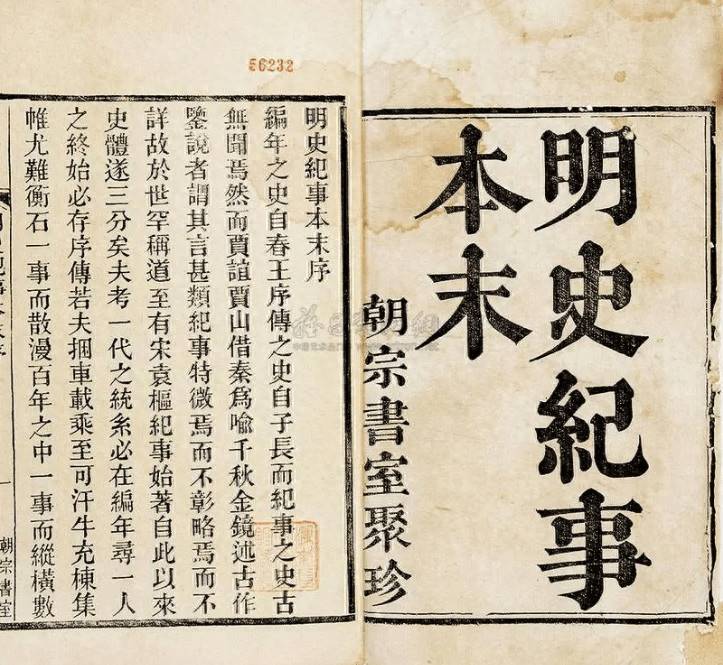 明史紀事
本末
朝宗書室聚珍
56232
明史紀事本末序
編年之史自春王序傳之史自子長而紀事之史古
無聞焉然而賈誼賈山借秦為喻千秋金鏡述古作
鑒說者謂其言甚類紀事特微焉而不彰略焉而不
詳故於世罕稱道至有宋袁樞紀事始著自此以來
史體遂三分矣夫考一代之統系必在編年尋一人
之終始必存序傳若夫捆車載乘至可汗牛充棟集
帷尤難衡石一事而散漫百年之中一事而縱橫數
朝宗書室